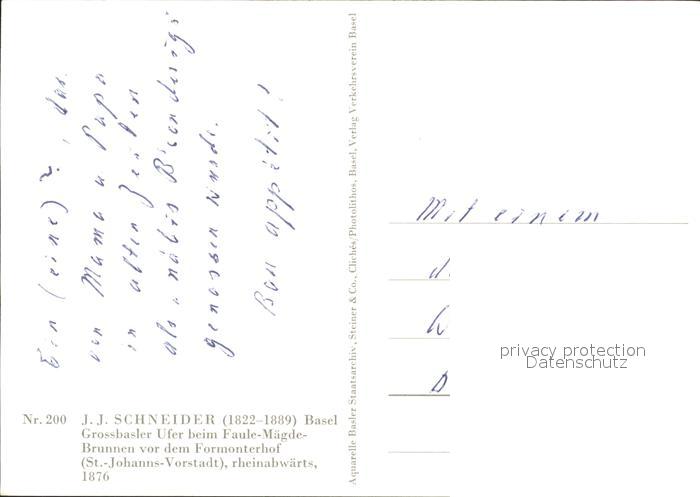 Ein (eine) ?, das
von Mama u Papa
in alten Zeiten
als
genossen wurde.
Bon appétit!
Nr. 200 J. J. SCHNEIDER (1822–1889) Basel
Grossbasler Ufer beim Faule-Mägde-
Brunnen vor dem Formonterhof
(St.-Johanns-Vorstadt), rheinabwärts,
1876
Aquarelle Basler Staatsarchiv, Steiner & Co., Clichés/Photolithos, Basel, Verlag Verkehrsverein Basel
Mit einem
d
W
D
privacy protection
Datenschutz